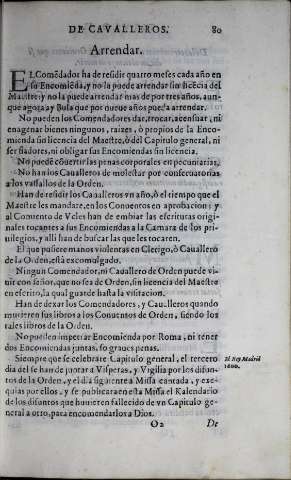 DE CAVALLEROS. 80
Arrendar.
EL Comẽdador ha de residir quatro meses cada año en
su Encomiẽda, y no la puede arrendar sin licẽcia del
Maestre: y no la puede arrendar mas de por tres años, aun-
que agora ay Bula que por nueue años pueda arrendar.
No pueden los Comendadores dar, trocar, acensuar, ni
enagenar bienes ningunos, raizes, ò propios de la Enco-
mienda sin licencia del Maestre, ò del Capitulo general, ni
ser fiadores, ni obligar sus Encomiendas sin licencia.
No puedẽ cõuertir las penas corporales en pecuniarias,
No han los Caualleros de molestar por consecuatorias
a los vassallos de la Orden.
Han de residir los Caualleros vn año, ò el tiempo que el
Maestre les mandare, en los Conuentos en aprobacion: y
al Conuento de Vcles han de embiar las escrituras origi-
nales tocantes a sus Encomiendas a la Camara de los pri-
uilegios, y alli han de buscar las que les tocaren.
El que pusiere manos violentas en Clerigo, ò Cauallero
de la Orden, està escomulgado.
Ningun Comendador, ni Cauallero de Orden puede vi-
uir con señor, que no sea de Orden, sin licencia del Maestre
en escrito, la qual guarde hasta la visitacion.
Han de dexar los Comendadores, y Caualleros quando
murieren sus libros a los Conuentos de Orden, siẽdo los
tales libros de la Orden.
No pueden impetrar Encomienda por Roma, ni tener
dos Encomiendas juntas, so graues penas.
Siempre que se celebrare Capitulo general, el tercero
dia del se han de juntar a Visperas, y Vigilia por los difun-
tos de la Orden, y el dia siguiente a Missa cantada, y exe-
quias por ellos, y se publicara en esta Missa el Kalendario
de los difuntos que huuieren fallecido de vn Capitulo ge-
neral a otro, para encomendarlos a Dios.
El Rey. Madrid
1600.
O2 De